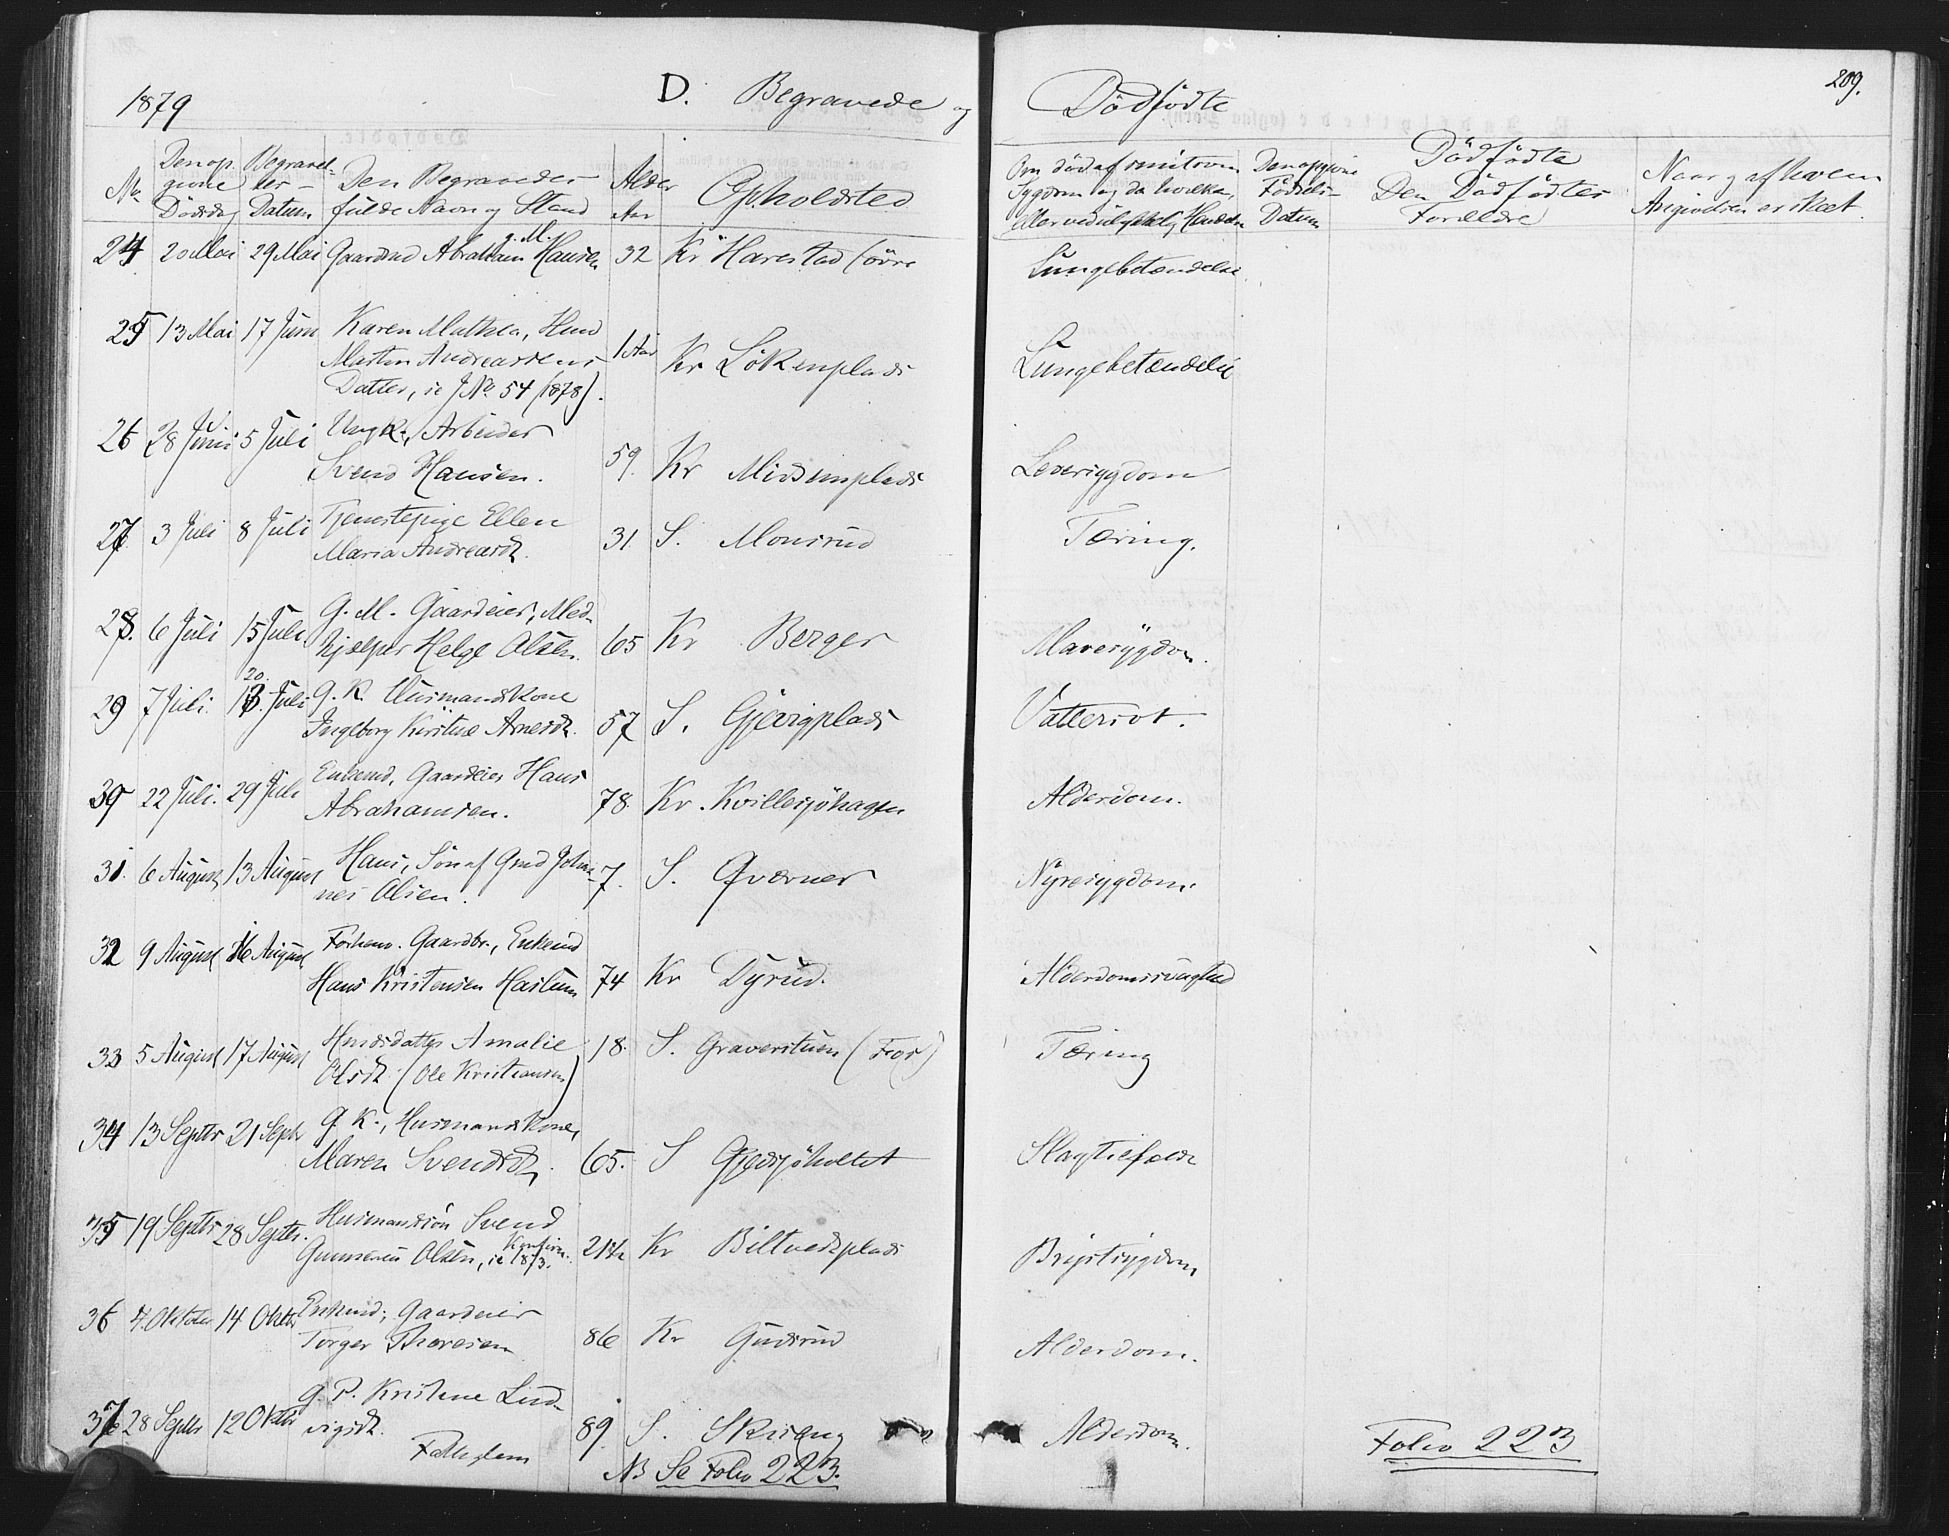 1879
D. Begravede og Dödfödte
209.
No
Den op-
givne
Dödsdag
Begravel-
ses-
Datum
Den Begravedes
fulde Navn og Stand
Alder
Aar
Opholdsted
Om död af smitsom
Sygdom og da hvilken,
eller ved ulykkelig Hændelse
Den opgivne
Födsels-
Datum
Dödfödte
Den Dödfödtes
Forældre
Naar og af hvem
Angivelsen er skeet
24 20 Mai 29 Mai Gaardmd Abraham Hansen 32 Kr Harestad (övre Lungebetændelse
g. M.
25 13 Mai 17 Juni Karen Mathea, Husmd
Martin Andreassens 1 Aar Kr Lökenplads Lungebetændelse
Datter, se No 54 (1878).
26 28 Juni 5 Juli Ungk., Arbeider
Svend Hansen. 59. Kr Midsemplads Leversygdom
27 3 Juli 8 Juli Tjenestepige Ellen
Maria Andreasd. 31. S. Monsrud Tæring.
28. 6 Juli 15 Juli G. M. Gaardeier, Med-
hjælper Helge Olsen. 65 Kr Berger Mavesygdom.
20.
29 7 Juli. 13. Juli G. K. Husmandskone
Ingeborg Kirstine Arnesd. 57 S. Gjevigplads Vattersot.
30 22 Juli. 29 Juli Enkemd, Gaardeier Hans
Abrahamsen. 78. Kr. Kvillesjöhagen Alderdom.
31. 6 August 13 August Hans, Sön af Gmd Johan-
nes Olsen. 7. S. Qværner Nyresygdom.
32 9 August 16 August Forhenv. Gaardbr., Enkemd
Hans Kristensen Haslum 74 Kr Dyrud. Alderdomssvaghed
33 5 August 17 August Husmdsdatter Amalie 18. S. Graverstuen (Fos) Tæring
Olsd. (Ole Kristiansen)
34 13 Septbr 21 Septbr G. K., Husmandskone,
Maren Svendsd. 65. S Gjedsjöholtet Slagtilfælde
35 19 Septbr 28 Septbr. Husmandssön Svend
Gunnerius Olsen, se Konfirm. 1873. 21 1/2 Kr Biltvedsplads Brystsygdom
36 4. Oktober 14 Oktbr Enkemd, Gaardeier
Torger Thoresen 86 Kr Gudsrud Alderdom.
37 28 Septbr 12 Oktbr G. P. Kristine Lud-
vigsd. 89. S. Skreng Alderdom.
Fattiglem
NB Se Folio 223.
Folio 223